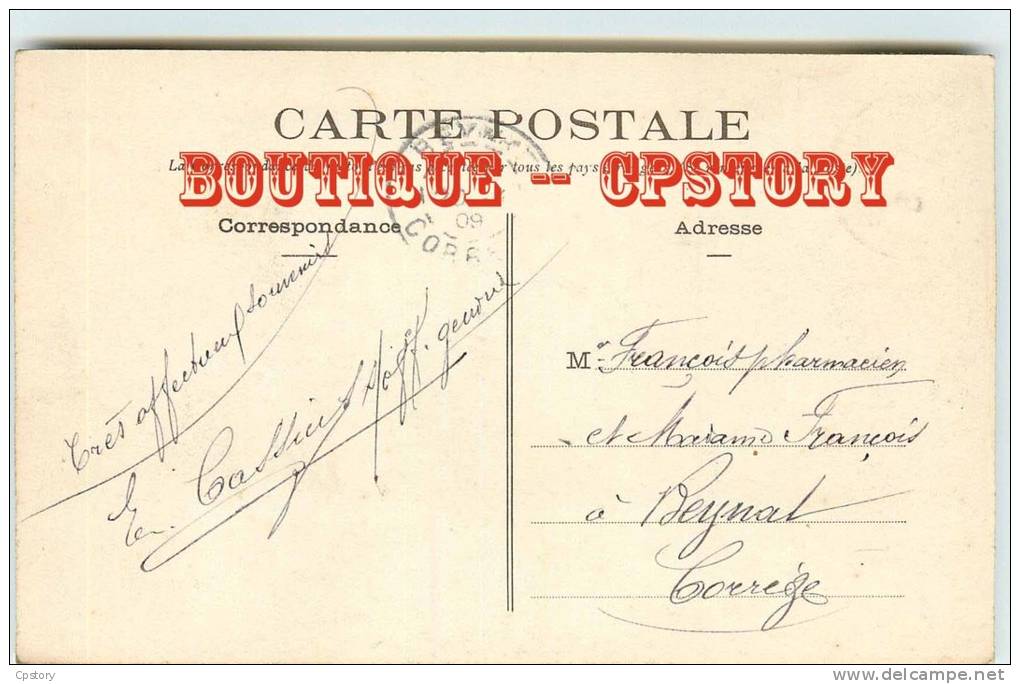 CARTE POSTALE
BOUTIQUE -- CPSTORY
tous les pays
Correspondance
Adresse
09
CORR
Très affectueux souvenirs
M. François pharmacien
et Madame François
à Beynat
Corrèze
Cpstory
delcampe.net